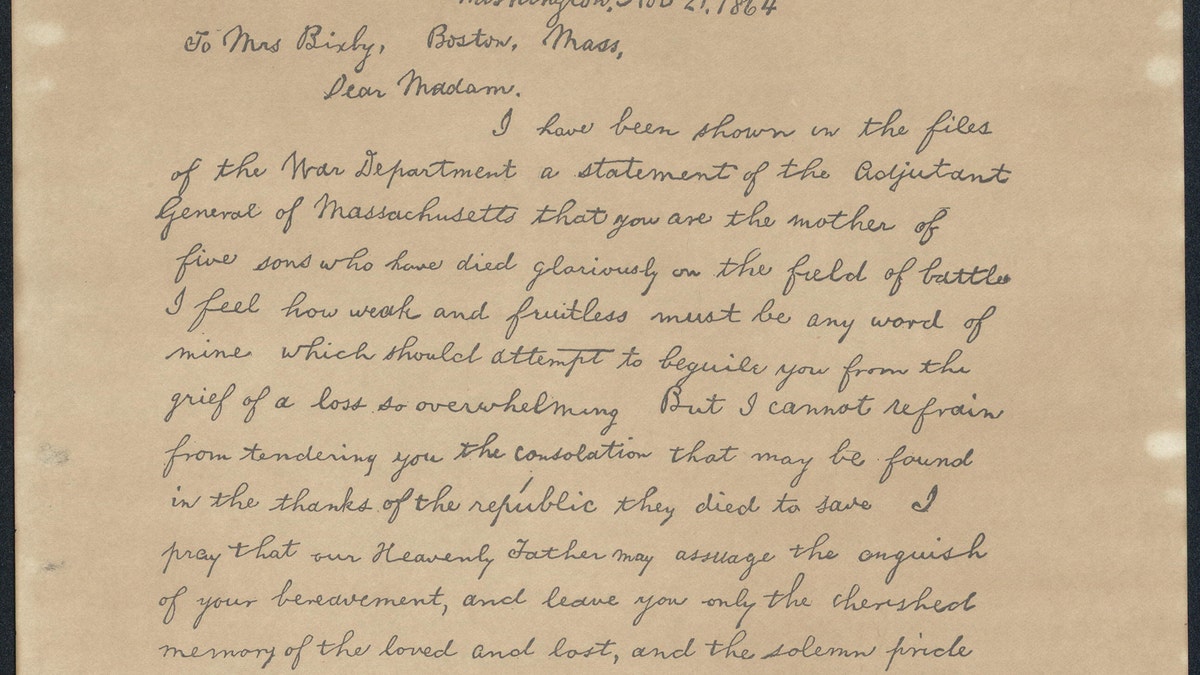 Washington, Nov 21, 1864
To Mrs Bixby, Boston, Mass,
Dear Madam.
I have been shown in the files
of the War Department a statement of the Adjutant
General of Massachusetts that you are the mother of
five sons who have died gloriously on the field of battle
I feel how weak and fruitless must be any word of
mine which should attempt to beguile you from the
grief of a loss so overwhelming But I cannot refrain
from tendering you the consolation that may be found
in the thanks of the republic they died to save I
pray that our Heavenly Father may assuage the anguish
of your bereavement, and leave you only the cherished
memory of the loved and lost, and the solemn pride